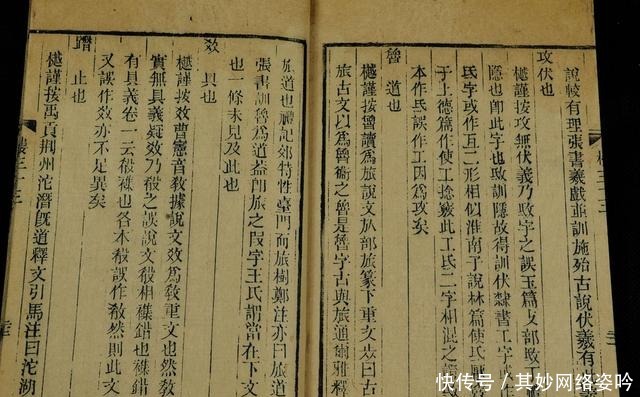 說較有理張書羲戲並訓施殆古說伏羲有
攻伏也
樾謹按攻無伏義乃敃字之誤玉篇攴部敃
隱也卽此字也敃訓隱故得訓伏隸書工字
氏字或作互二形相似淮南子說林篇使氏厭
于上德篇作使工捻竅此工氏二字相混之
本作氏誤作工因爲攻矣
魯 道也
樾謹按魯讀爲旅說文㫃部旅篆下重文曰古
旅古文以爲魯衞之魯是魯字古與旅通爾雅釋
旅道也禮記郊特牲臺門而旅樹鄭注亦曰旅道
張書訓魯爲道葢卽旅之叚字王氏謂當在下文
也一條未見及此也
效 具也
樾謹按效曹憲音敎據說文效爲敎重文也然敎
實無具義疑效乃殽之誤說文殽相襍錯也襍
有具義卷一云殽襍也各本殽誤作敎然則此文
又誤作效亦不足異矣
止也
樾謹按禹貢荆州沱潛旣道釋文引馬注曰沱湖
快传号 / 其妙网络姿吟